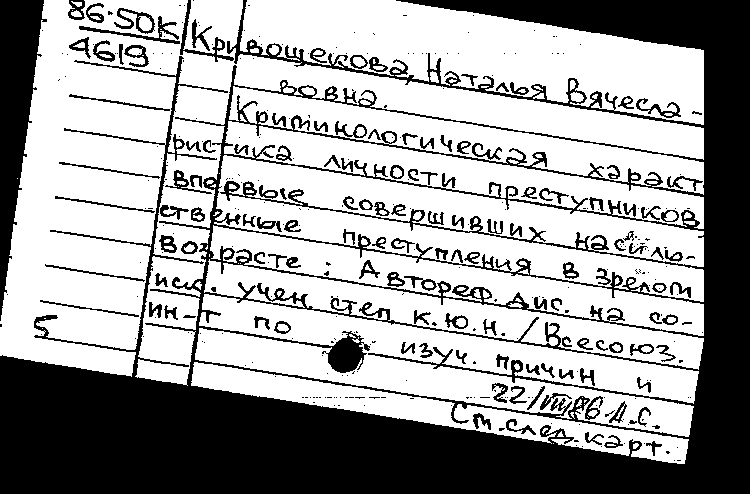 86-50К
4619
Кривощекова, Наталья Вячесла-
вовна.
Криминологическая характ
ристика личности преступников,
впервые совершивших насиль-
ственные преступления в зрелом
возрасте : Автореф. дис. на со-
иск. учен. степ. к.ю.н. / Всесоюз.
ин-т по изуч. причин и
5
22/VIII86 Л.С.
См. след. карт.